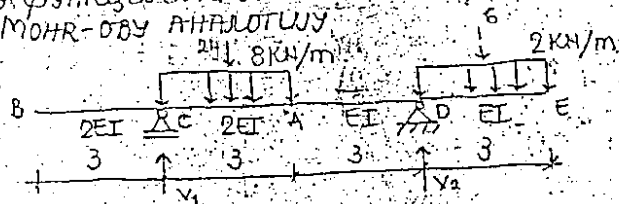 MOHR-ОВУ АНАЛОГИЈУ
24 8KN/m 6 2KN/m
B C A D E
2EI 2EI EI EI
3 3 3 3
V1 V2